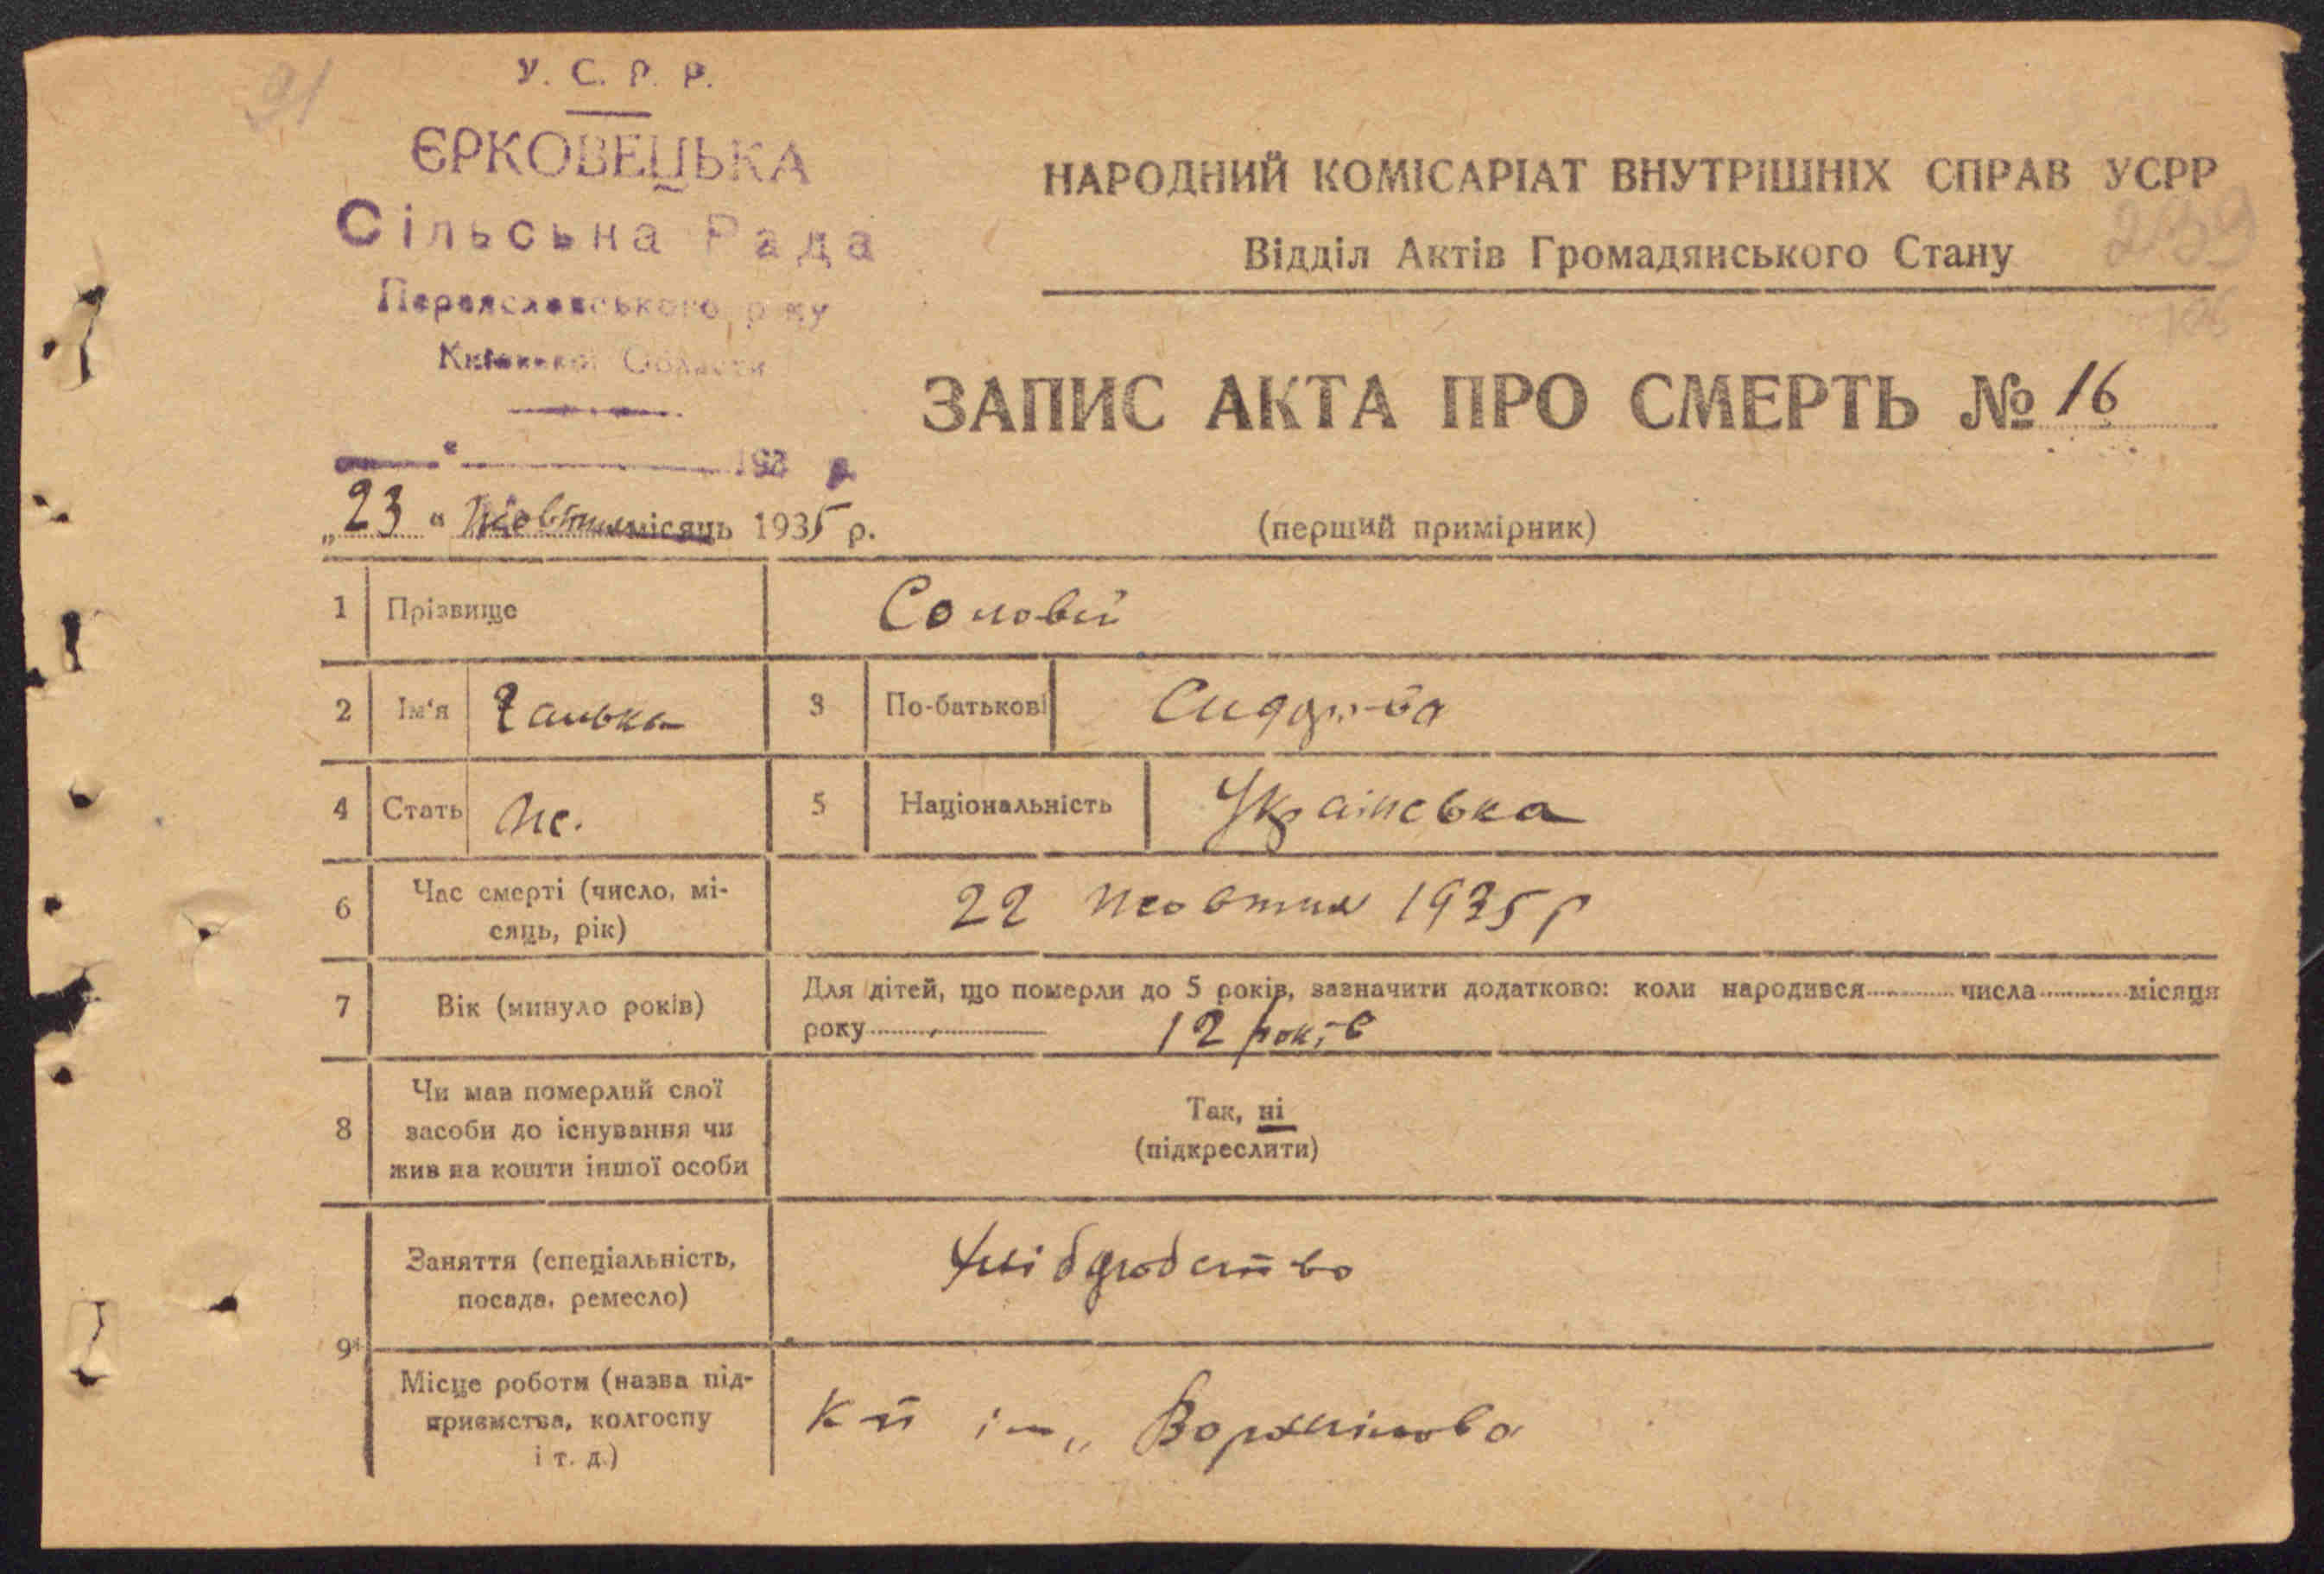 91
У. С. Р. Р.
ЄРКОВЕЦЬКА
Сільська Рада
Переяславського р-ну
Київської Области
193 р.
„23“ Жовтня місяць 1935 р.
НАРОДНИЙ КОМІСАРІАТ ВНУТРІШНІХ СПРАВ УСРР
239
Відділ Актів Громадянського Стану
ЗАПИС АКТА ПРО СМЕРТЬ № 16
(перший примірник)
1 Прізвище Соловій
2 Ім‘я Галька 3 По-батькові
4 Стать Ж. 5 Національність Українська
6 Час смерті (число, мі-
сяць, рік) 22 жовтня 1935 р
7 Вік (минуло років) Для дітей, що померли до 5 років, зазначити додатково: коли народився числа місяця
року 12 років
8 Чи мав померлий свої
засоби до існування чи
жив на кошти іншої особи
Так, ні
(підкреслити)
9 Заняття (спеціальність,
посада, ремесло) Хліборобство
Місце роботи (назва під-
приємства, колгоспу
і т. д.)
ім„ Ворошилова